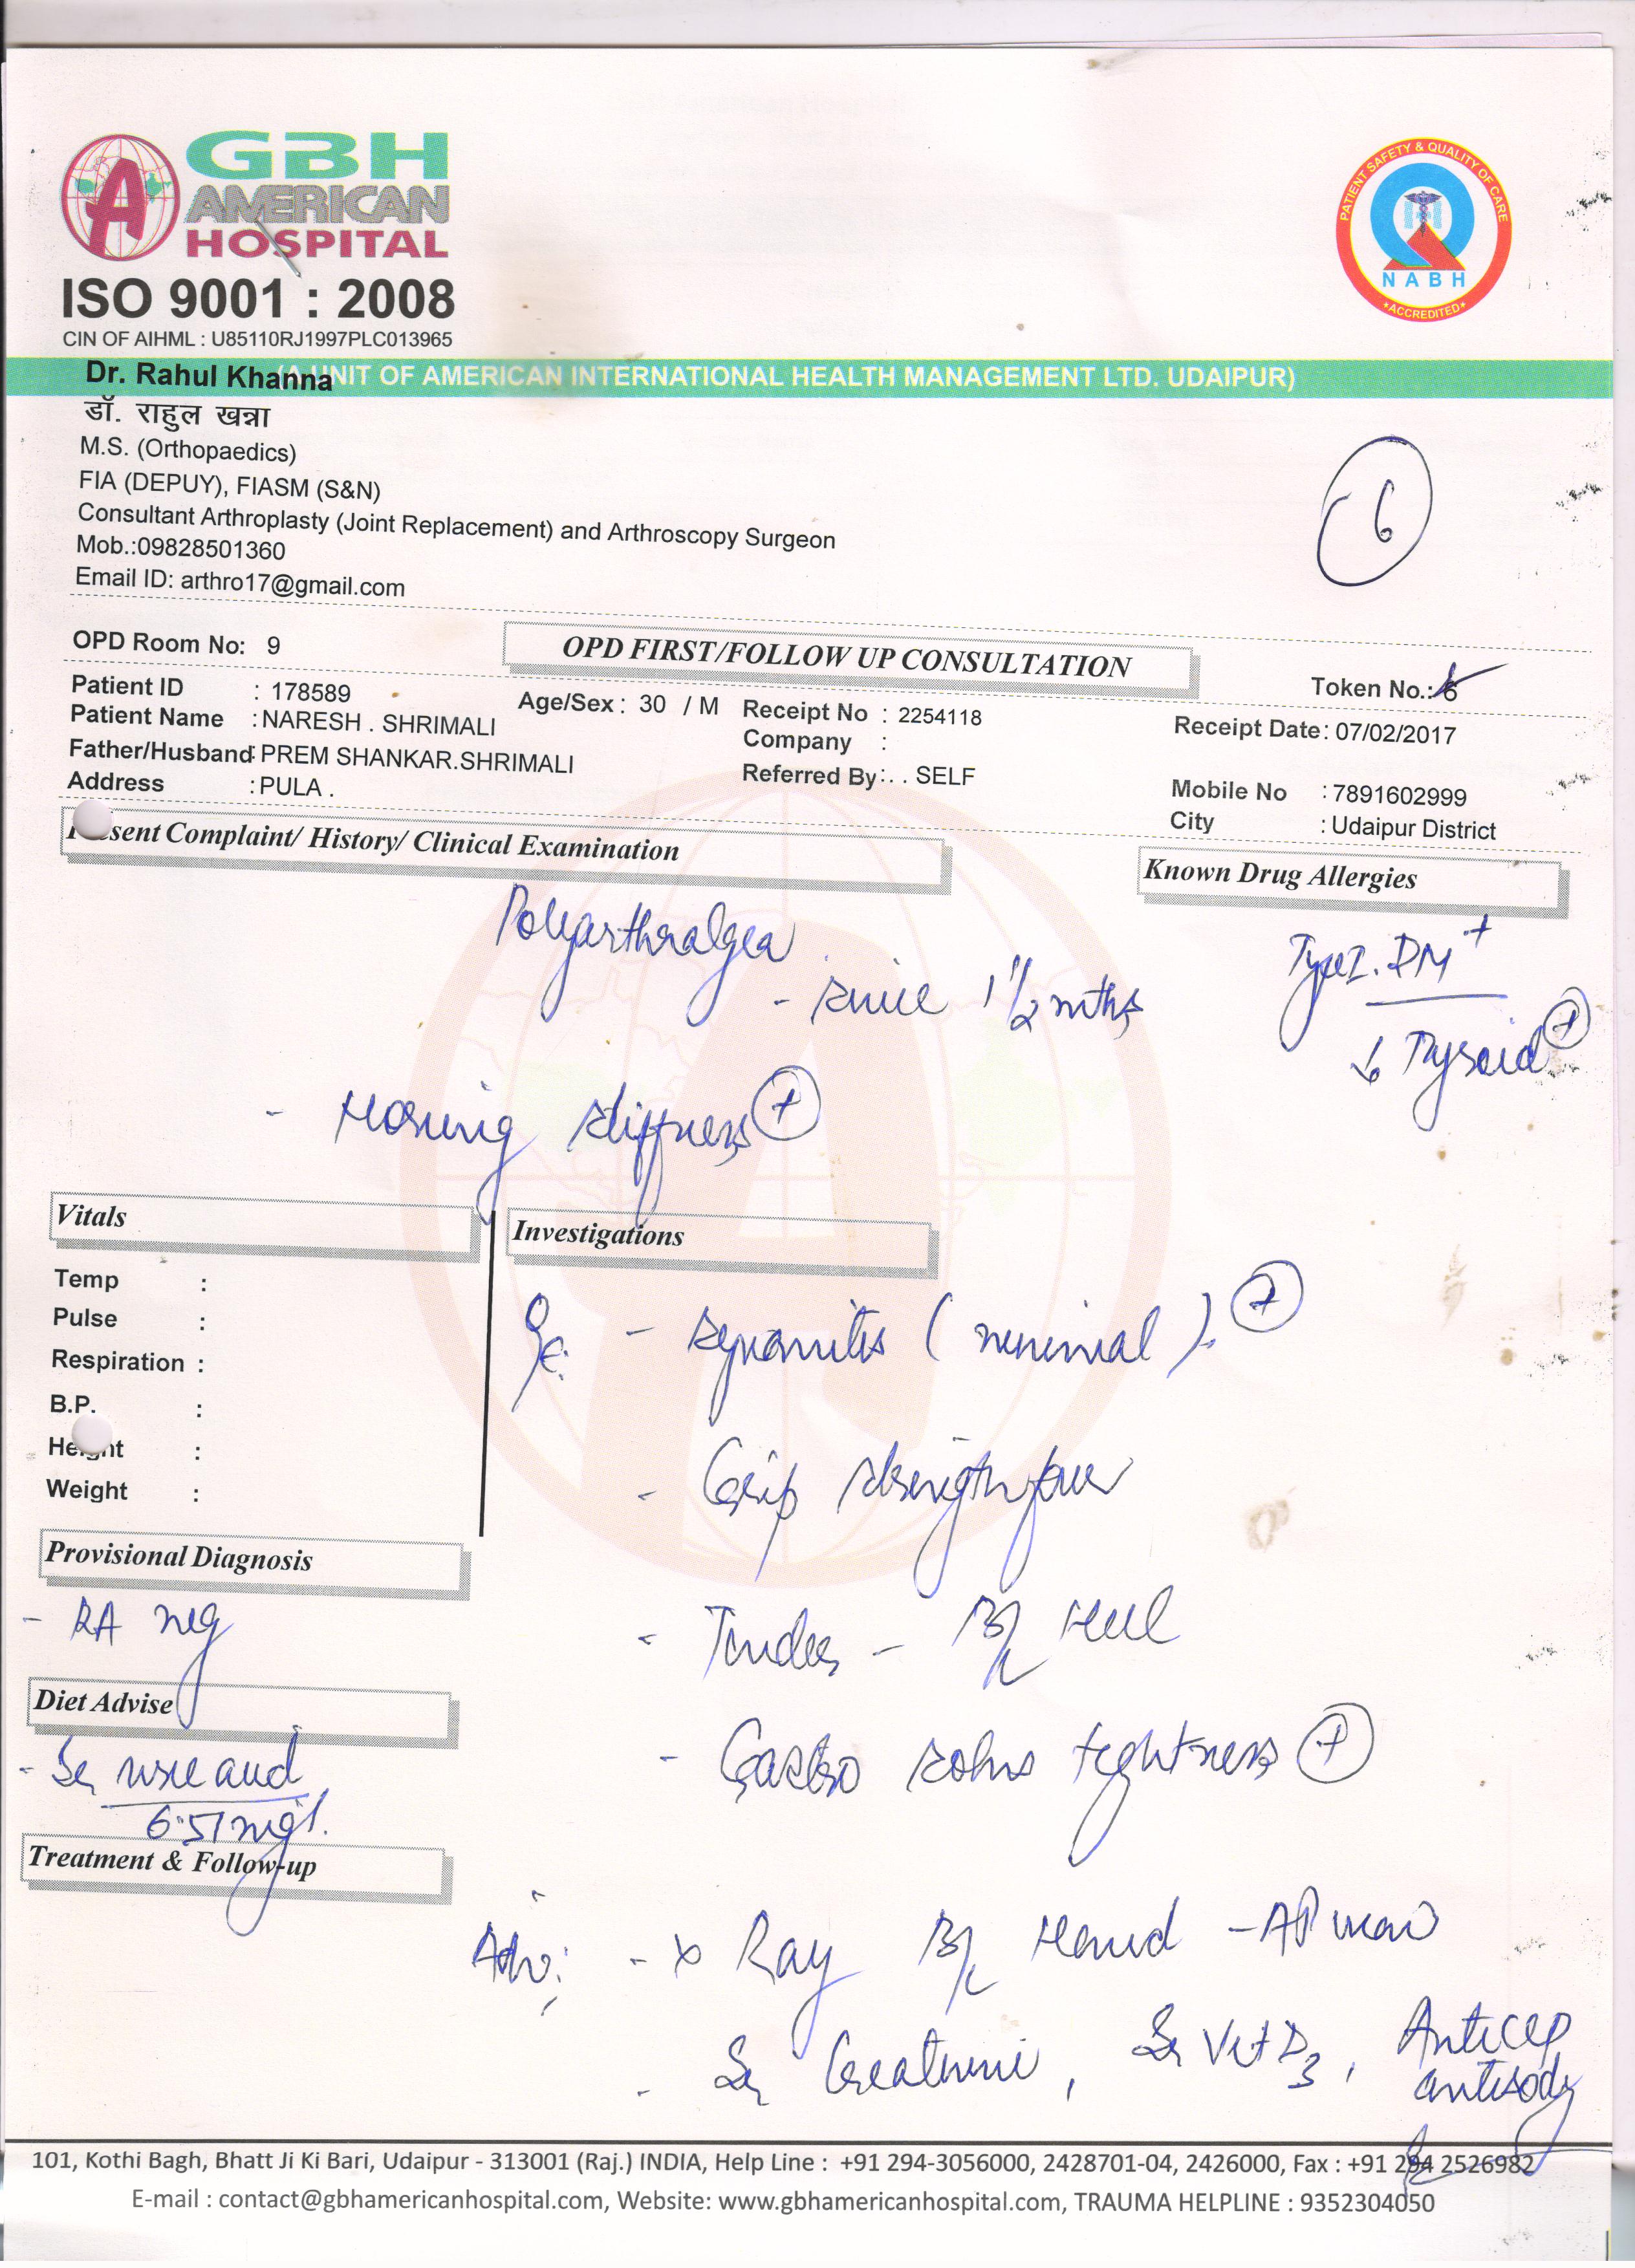 GBH
AMERICAN
HOSPITAL
ISO 9001 : 2008
CIN OF AIHML : U85110RJ1997PLC013965
PATIENT SAFETY & QUALITY OF CARE
NABH
ACCREDITED
(A UNIT OF AMERICAN INTERNATIONAL HEALTH MANAGEMENT LTD. UDAIPUR)
Dr. Rahul Khanna
डॉ. राहुल खन्ना
M.S. (Orthopaedics)
FIA (DEPUY), FIASM (S&N)
Consultant Arthroplasty (Joint Replacement) and Arthroscopy Surgeon
Mob.:09828501360
Email ID: arthro17@gmail.com
6
OPD Room No: 9
OPD FIRST/FOLLOW UP CONSULTATION
Token No.: 6
Patient ID : 178589
Age/Sex : 30 / M
Receipt No : 2254118
Receipt Date: 07/02/2017
Patient Name : NARESH . SHRIMALI
Company :
Father/Husband : PREM SHANKAR.SHRIMALI
Referred By: . . SELF
Mobile No : 7891602999
Address : PULA .
City : Udaipur District
Present Complaint/ History/ Clinical Examination
Known Drug Allergies
Polyarthralgea
- since 1 1/2 mths
Type I. DM +
↓ Thysoid +
- Morning stiffness +
Vitals
Investigations
Temp :
Pulse :
Respiration :
B.P. :
Height :
Weight :
- synovitis (minimal). +
- Grip strength poor
- Tender - B/L Heel
- Gastro soleus tightness +
Provisional Diagnosis
- RA neg
Diet Advise
- Sr uric acid
6.51 mg/.
Treatment & Follow-up
Adv: - X Ray B/L Hand - AP view
- Sr Creatinine, Sr Vit D3, Anti CCP
antibody
101, Kothi Bagh, Bhatt Ji Ki Bari, Udaipur - 313001 (Raj.) INDIA, Help Line : +91 294-3056000, 2428701-04, 2426000, Fax : +91 294 2526982
E-mail : contact@gbhamericanhospital.com, Website: www.gbhamericanhospital.com, TRAUMA HELPLINE : 9352304050